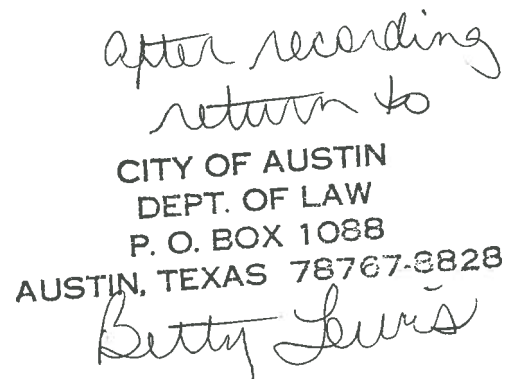 after recording
return to
CITY OF AUSTIN
DEPT. OF LAW
P. O. BOX 1088
AUSTIN, TEXAS 78767-8828
Betty Lewis